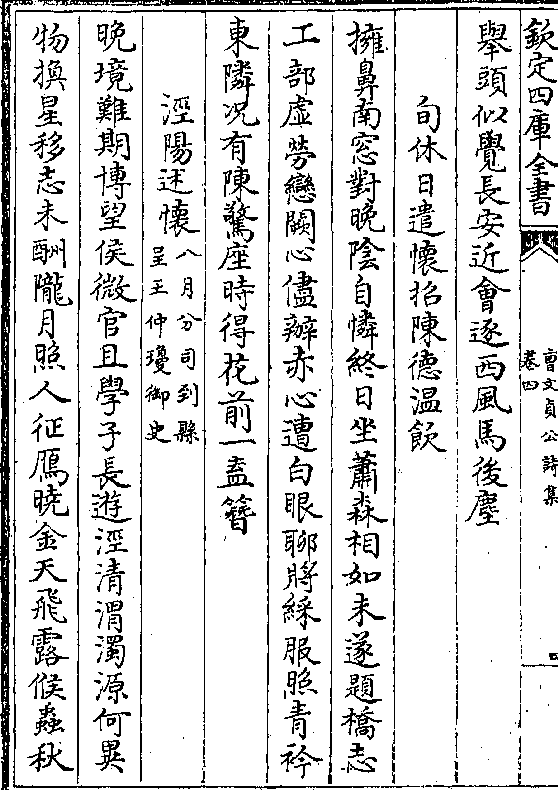 欽定四庫全書
曹文貞公詩集
卷四
四
舉頭似覺長安近會逐西風馬後塵
旬休日遣懷招陳德温飲
擁鼻南窓對晚陰自憐終日坐蕭森相如未遂題橋志
工部虛勞戀闕心儘辦赤心遭白眼聊將綵服照青衿
東隣况有陳驚座時得花前一盍簪
涇陽述懷八月分司到縣
呈王仲瓊御史
晚境難期博望侯微官且學子長遊涇清渭濁源何異
物換星移志未酬隴月照人征鴈曉金天飛露候蟲秋